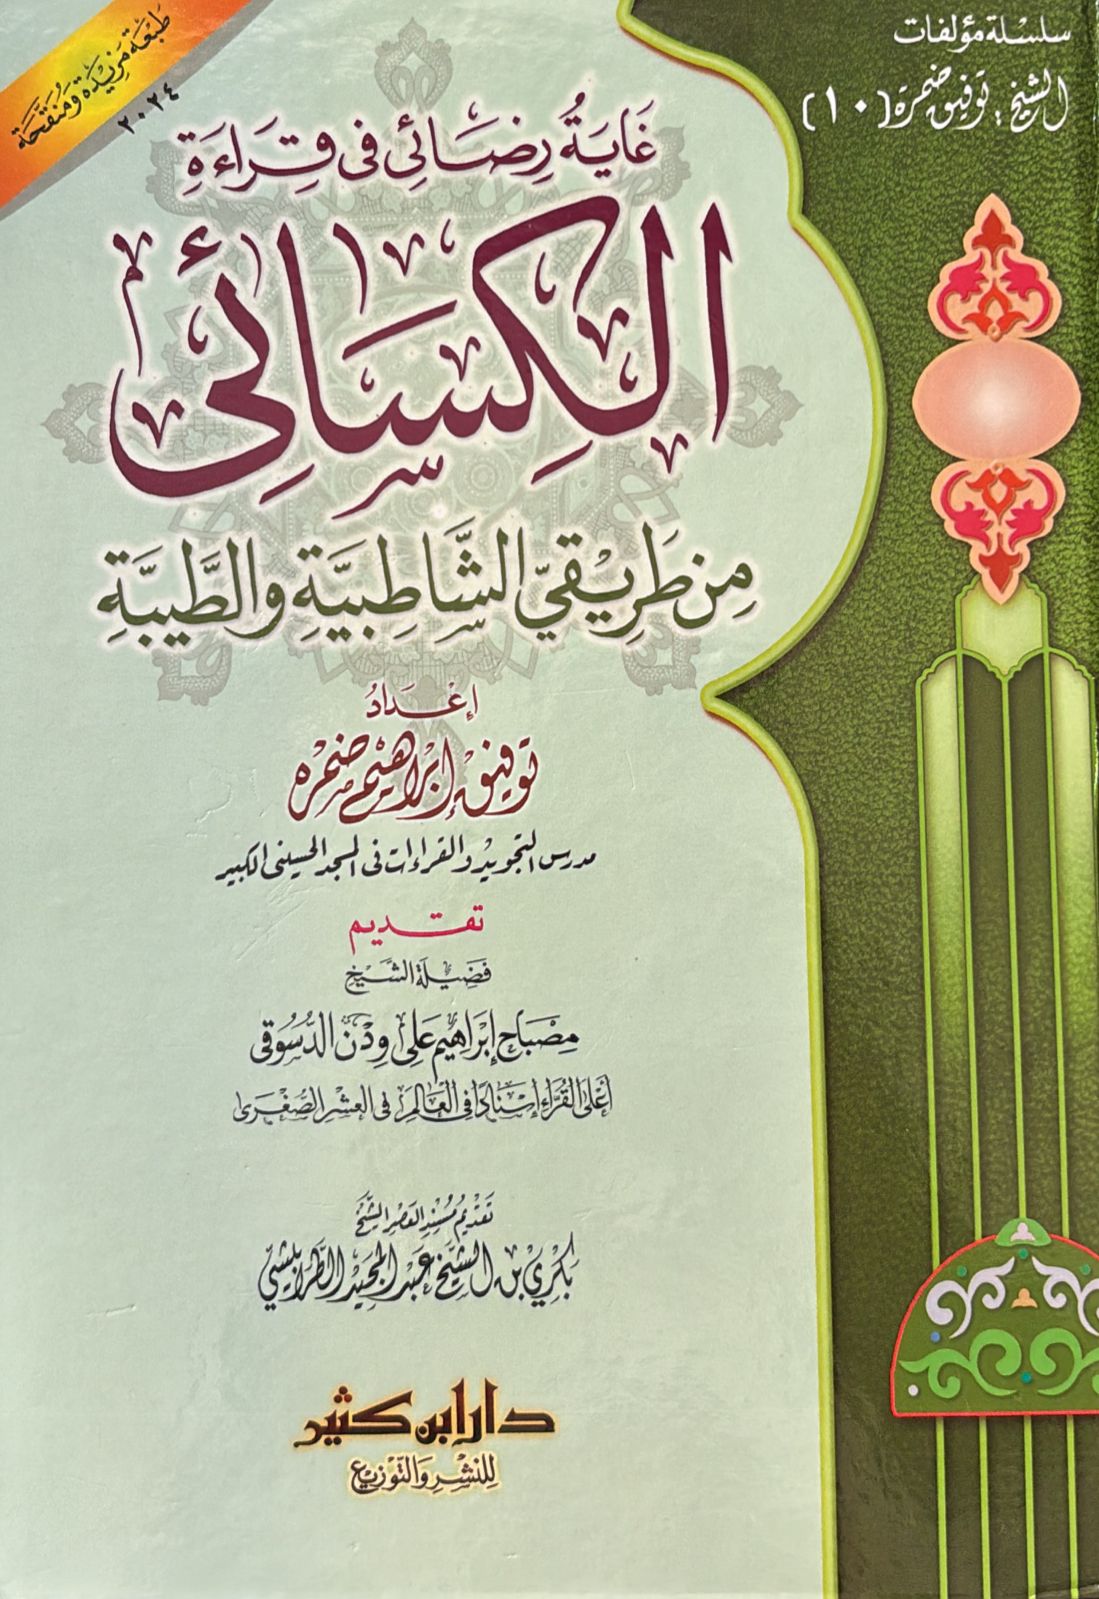 سلسلة مؤلفات
الشيخ: توفيق ضمرة (١٠)
طَبْعَة مَزِيْدَة وَمُنَقَّحَة
٢٠٢٤
غَايَةُ رِضَائِي فِي قِرَاءَةِ
الكِسَائِي
مِنْ طَرِيْقَيِّ الشَّاطِبِيَّةِ وَالطَّيِّبَةِ
إعْدَادُ
توفيق إبراهيم ضمره
مدرس التجويد والقراءات في المسجد الحسيني الكبير
تقديم
فَضِيلَة الشَّيخ
مِصْبَاح إبْرَاهِيْم عَلي وِدْنْ الدُّسُوقي
أعْلَى القُرَّاء إسْنَادًا في العَالَم في العشر الصُّغْرى
تَقْدِيْم مُسْنِد العَصْر الشَّيْخ
بَكْرِي بْن الشَّيْخ عَبْد المَجِيْد الطَّرَابِيشِي
دار ابن كثير
لِلنَّشْرِ وَالتَّوْزِيْعِ